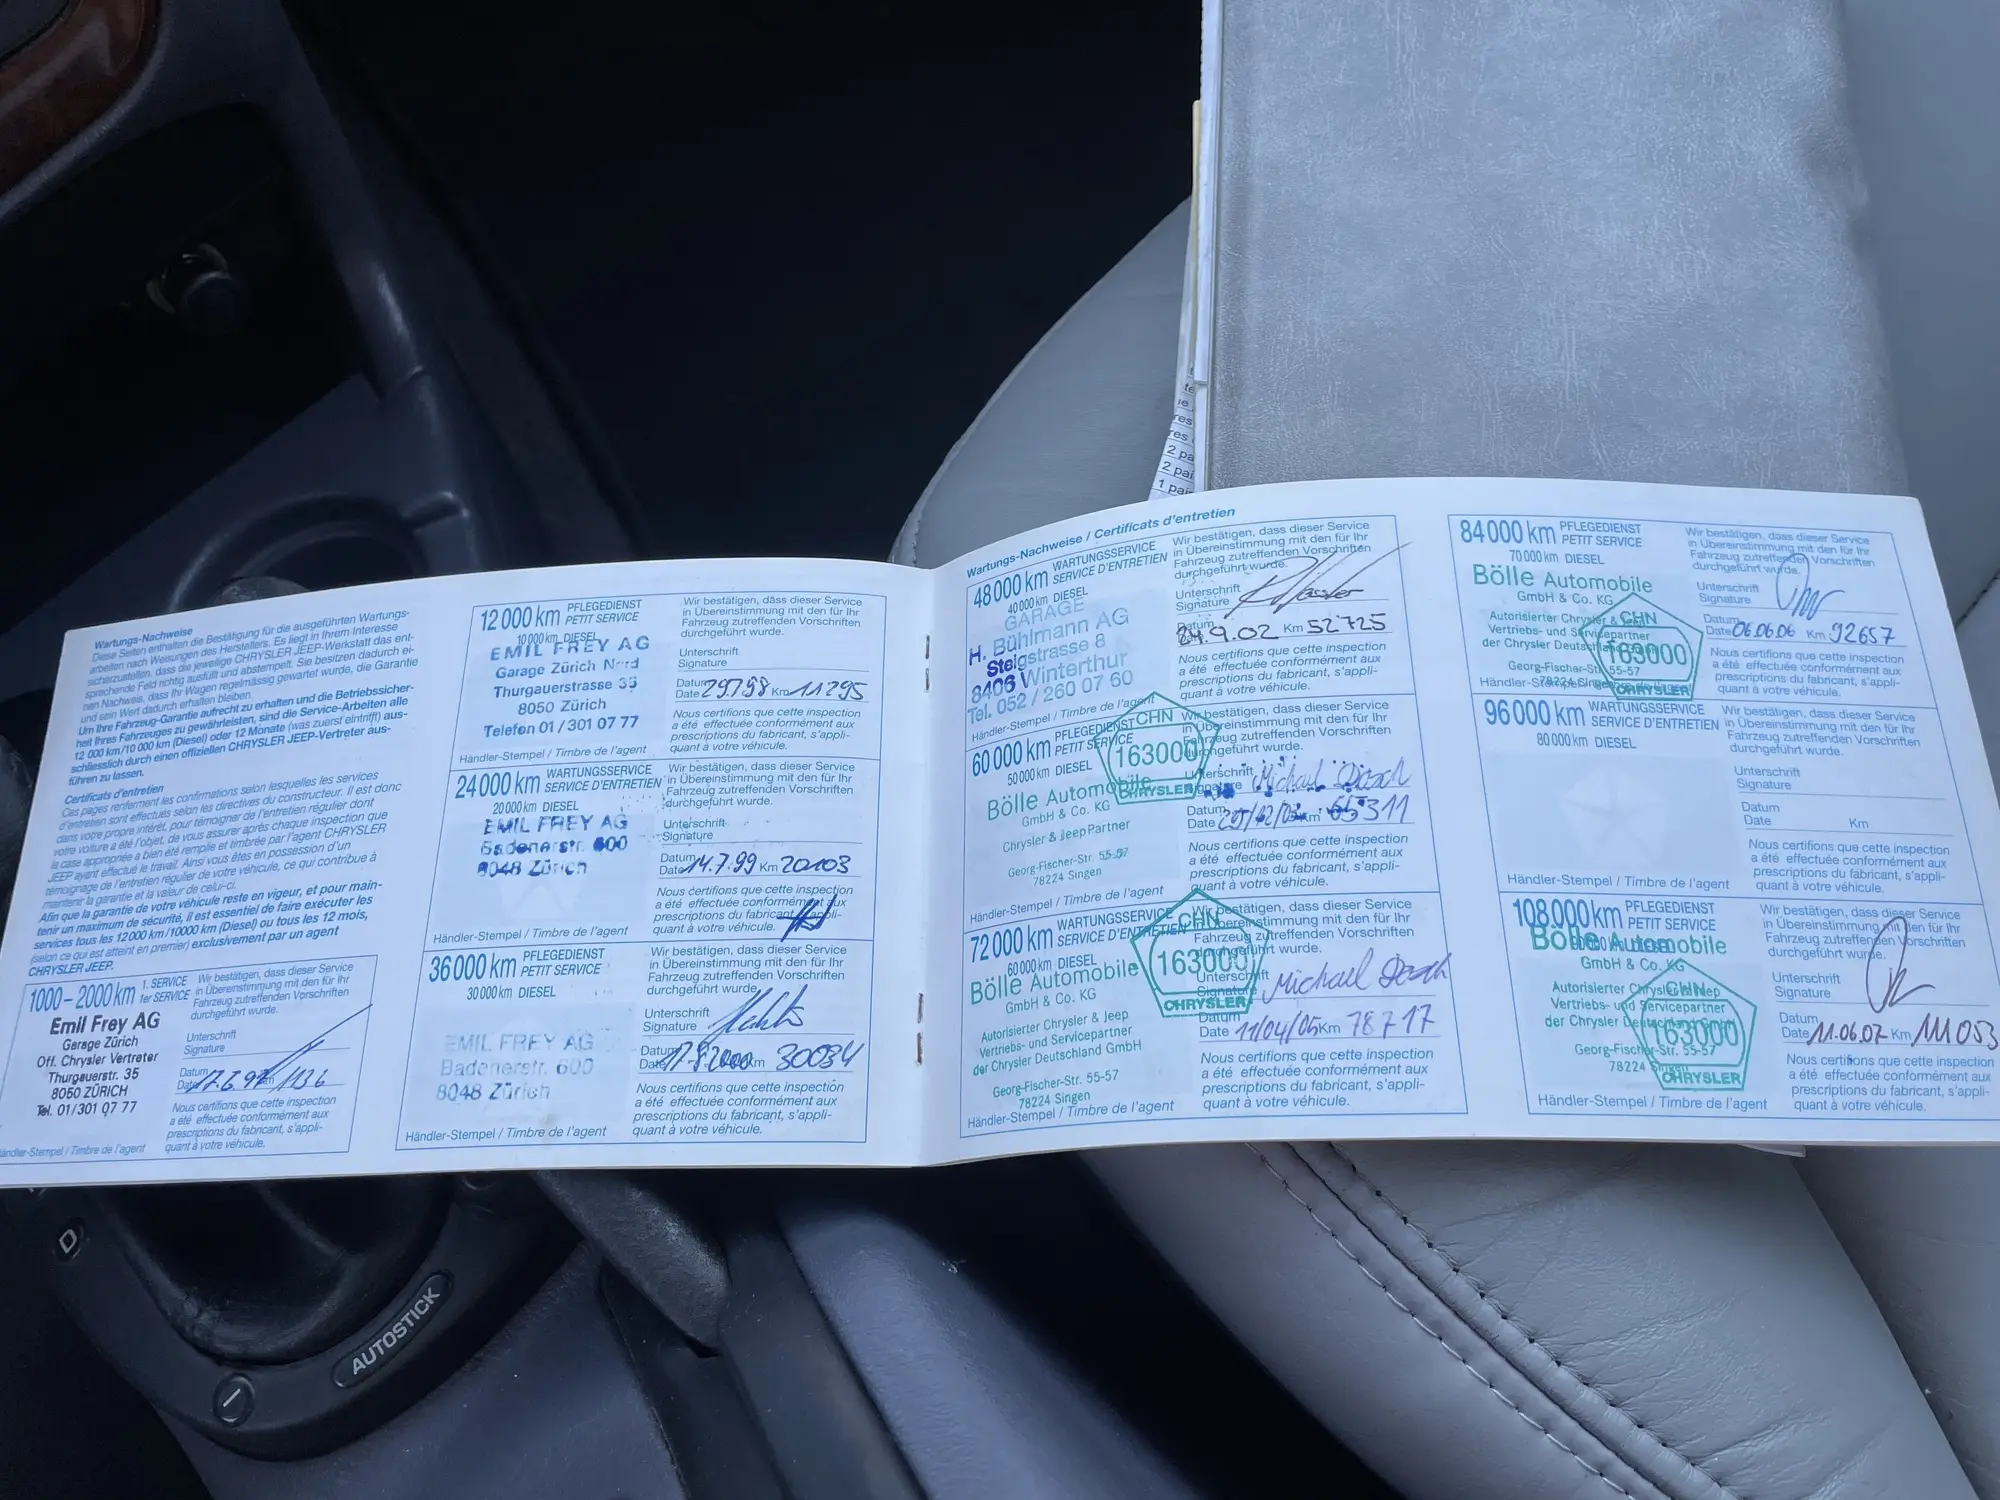 Wartungs-Nachweise
Diese Seiten enthalten die Bestätigung für die ausgeführten Wartungs-
arbeiten nach Weisungen des Herstellers. Es liegt in Ihrem Interesse
sicherzustellen, dass die jeweilige CHRYSLER JEEP-Werkstatt das ent-
sprechende Feld richtig ausfüllt und abstempelt. Sie besitzen dadurch ei-
nen Nachweis, dass Ihr Wagen regelmässig gewartet wurde, die Garantie
und sein Wert dadurch erhalten bleiben.
Um Ihre Fahrzeug-Garantie aufrecht zu erhalten und die Betriebssicher-
heit Ihres Fahrzeuges zu gewährleisten, sind die Service-Arbeiten alle
12 000 km/10 000 km (Diesel) oder 12 Monate (was zuerst eintrifft) aus-
schliesslich durch einen offiziellen CHRYSLER JEEP-Vertreter aus-
führen zu lassen.
Certificats d'entretien
Ces pages renferment les confirmations selon lesquelles les services
d'entretien sont effectués selon les directives du constructeur. Il est donc
dans votre propre intérêt, pour témoigner de l'entretien régulier dont
votre voiture a été l'objet, de vous assurer après chaque inspection que
la case appropriée a bien été remplie et timbrée par l'agent CHRYSLER
JEEP ayant effectué le travail. Ainsi vous êtes en possession d'un
témoignage de l'entretien régulier de votre véhicule, ce qui contribue à
maintenir la garantie et la valeur de celui-ci.
Afin que la garantie de votre véhicule reste en vigeur, et pour main-
tenir un maximum de sécurité, il est essentiel de faire exécuter les
services tous les 12 000 km/10000 km (Diesel) ou tous les 12 mois,
(selon ce qui est atteint en premier) exclusivement par un agent
CHRYSLER JEEP.
1000–2000 km 1. SERVICE
1er SERVICE
Emil Frey AG
Garage Zürich
Off. Chrysler Vertreter
Thurgauerstr. 35
8050 ZÜRICH
Tel. 01/301 07 77
Händler-Stempel / Timbre de l'agent
Wir bestätigen, dass dieser Service
in Übereinstimmung mit den für Ihr
Fahrzeug zutreffenden Vorschriften
durchgeführt wurde.
Unterschrift
Signature
Datum
Date 17.6.97 km 1136
Nous certifions que cette inspection
a été effectuée conformément aux
prescriptions du fabricant, s'appli-
quant à votre véhicule.
12 000 km PFLEGEDIENST
PETIT SERVICE
10 000 km DIESEL
EMIL FREY AG
Garage Zürich Nord
Thurgauerstrasse 35
8050 Zürich
Telefon 01 / 301 07 77
Händler-Stempel / Timbre de l'agent
Wir bestätigen, dass dieser Service
in Übereinstimmung mit den für Ihr
Fahrzeug zutreffenden Vorschriften
durchgeführt wurde.
Unterschrift
Signature
Datum
Date 29.7.98 Km 11295
Nous certifions que cette inspection
a été effectuée conformément aux
prescriptions du fabricant, s'appli-
quant à votre véhicule.
24 000 km WARTUNGSSERVICE
SERVICE D'ENTRETIEN
20 000 km DIESEL
EMIL FREY AG
Badenerstr. 600
8048 Zürich
Händler-Stempel / Timbre de l'agent
Wir bestätigen, dass dieser Service
in Übereinstimmung mit den für Ihr
Fahrzeug zutreffenden Vorschriften
durchgeführt wurde.
Unterschrift
Signature
Datum
Date 14.7.99 Km 20103
Nous certifions que cette inspection
a été effectuée conformément aux
prescriptions du fabricant, s'appli-
quant à votre véhicule.
36 000 km PFLEGEDIENST
PETIT SERVICE
30 000 km DIESEL
EMIL FREY AG
Badenerstr. 600
8048 Zürich
Händler-Stempel / Timbre de l'agent
Wir bestätigen, dass dieser Service
in Übereinstimmung mit den für Ihr
Fahrzeug zutreffenden Vorschriften
durchgeführt wurde.
Unterschrift
Signature
Datum
Date 17.8.2000 km 30034
Nous certifions que cette inspection
a été effectuée conformément aux
prescriptions du fabricant, s'appli-
quant à votre véhicule.
Wartungs-Nachweise / Certificats d'entretien
48 000 km WARTUNGSSERVICE
SERVICE D'ENTRETIEN
40 000 km DIESEL
GARAGE
H. Bühlmann AG
Steigstrasse 8
8406 Winterthur
Tel. 052 / 260 07 60
Händler-Stempel / Timbre de l'agent
Wir bestätigen, dass dieser Service
in Übereinstimmung mit den für Ihr
Fahrzeug zutreffenden Vorschriften
durchgeführt wurde.
Unterschrift
Signature
Datum
Date 24.9.02 Km 52725
Nous certifions que cette inspection
a été effectuée conformément aux
prescriptions du fabricant, s'appli-
quant à votre véhicule.
60 000 km PFLEGEDIENST
PETIT SERVICE
50 000 km DIESEL
CHN
163000
CHRYSLER
Bölle Automobile
GmbH & Co. KG
Chrysler & Jeep Partner
Georg-Fischer-Str. 55-57
78224 Singen
Händler-Stempel / Timbre de l'agent
Wir bestätigen, dass dieser Service
in Übereinstimmung mit den für Ihr
Fahrzeug zutreffenden Vorschriften
durchgeführt wurde.
Unterschrift Michael
Signature
Datum
Date km 65311
Nous certifions que cette inspection
a été effectuée conformément aux
prescriptions du fabricant, s'appli-
quant à votre véhicule.
72 000 km WARTUNGSSERVICE
SERVICE D'ENTRETIEN
60 000 km DIESEL
CHN
163000
CHRYSLER
Bölle Automobile
GmbH & Co. KG
Autorisierter Chrysler & Jeep
Vertriebs- und Servicepartner
der Chrysler Deutschland GmbH
Georg-Fischer-Str. 55-57
78224 Singen
Händler-Stempel / Timbre de l'agent
Wir bestätigen, dass dieser Service
in Übereinstimmung mit den für Ihr
Fahrzeug zutreffenden Vorschriften
durchgeführt wurde.
Unterschrift Michael
Signature
Datum
Date 11/04/05 Km 78717
Nous certifions que cette inspection
a été effectuée conformément aux
prescriptions du fabricant, s'appli-
quant à votre véhicule.
84 000 km PFLEGEDIENST
PETIT SERVICE
70 000 km DIESEL
Bölle Automobile
GmbH & Co. KG
Autorisierter Chrysler & Jeep
Vertriebs- und Servicepartner
der Chrysler Deutschland
Georg-Fischer-Str. 55-57
78224 Singen
CHN
163000
CHRYSLER
Händler-Stempel / Timbre de l'agent
Wir bestätigen, dass dieser Service
in Übereinstimmung mit den für Ihr
Fahrzeug zutreffenden Vorschriften
durchgeführt wurde.
Unterschrift
Signature
Datum
Date 06.06.06 Km 92657
Nous certifions que cette inspection
a été effectuée conformément aux
prescriptions du fabricant, s'appli-
quant à votre véhicule.
96 000 km WARTUNGSSERVICE
SERVICE D'ENTRETIEN
80 000 km DIESEL
Händler-Stempel / Timbre de l'agent
Wir bestätigen, dass dieser Service
in Übereinstimmung mit den für Ihr
Fahrzeug zutreffenden Vorschriften
durchgeführt wurde.
Unterschrift
Signature
Datum
Date Km
Nous certifions que cette inspection
a été effectuée conformément aux
prescriptions du fabricant, s'appli-
quant à votre véhicule.
108 000 km PFLEGEDIENST
PETIT SERVICE
90 000 km DIESEL
Bölle Automobile
GmbH & Co. KG
Autorisierter Chrysler & Jeep
Vertriebs- und Servicepartner
der Chrysler Deutschland
Georg-Fischer-Str. 55-57
78224 Singen
CHN
163000
CHRYSLER
Händler-Stempel / Timbre de l'agent
Wir bestätigen, dass dieser Service
in Übereinstimmung mit den für Ihr
Fahrzeug zutreffenden Vorschriften
durchgeführt wurde.
Unterschrift
Signature
Datum
Date 11.06.07 Km 111053
Nous certifions que cette inspection
a été effectuée conformément aux
prescriptions du fabricant, s'appli-
quant à votre véhicule.
2 pa
2 pai
1 pai
D
AUTOSTICK